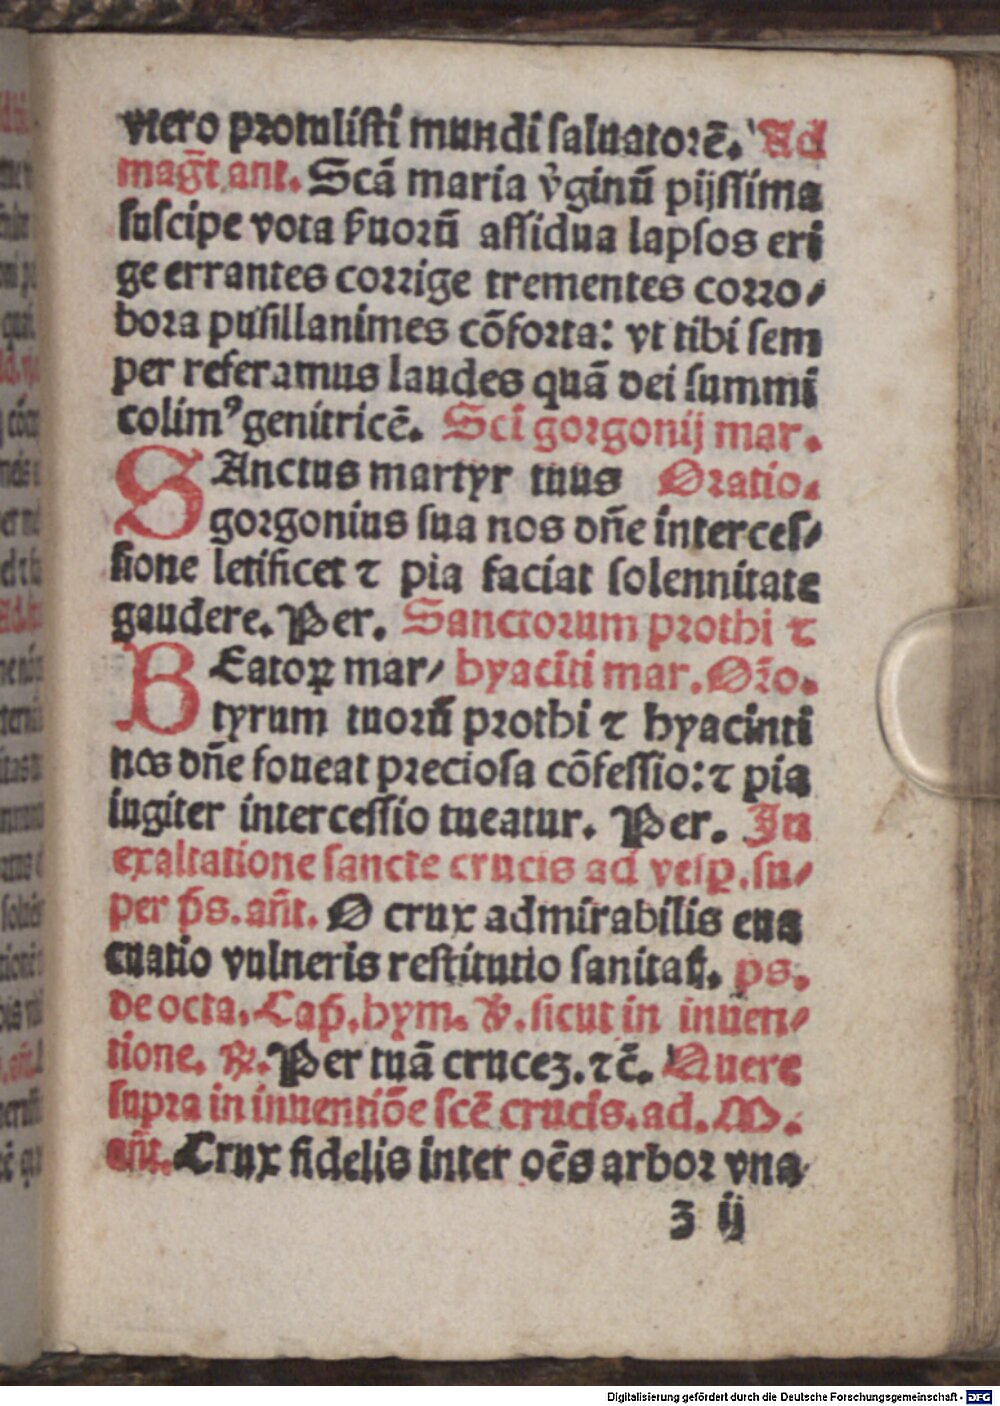 vtero protulisti mundi saluatorē. Ad
mag̅t ant. Scā maria v̉ginū pijssima
suscipe vota ẜuorū assidua lapsos eri
ge errantes corrige trementes corro⸗
bora pusillanimes cōforta: vt tibi sem
per referamus laudes quā dei summi
colimꝰ genitricē. Sci̅ gorgonij mar.
SAnctus martyr tuus Oratio.
gorgonius sua nos dn̄e interces⸗
sione letificet ⁊ pia faciat solennitate
gaudere. Per. Sanctorum prothi ⁊
BEatoꝝ mar⸗ hyaciti mar. Or̄o.
tyrum tuorū prothi ⁊ hyacinti
nos dn̄e foueat preciosa cōfessio: ⁊ pia
iugiter intercessio tueatur. Per. In
exaltatione sancte crucis ad vesp̱. su⸗
per p̄s. an̄t. O crux admirabilis eua
cuatio vulneris restitutio sanitaꝭ. ps.
de octa. Cap̄. hym. ℣. sicut in inuen⸗
tione. ℟. Per tuā crucez. ⁊c̄. Quere
supra in inuentiōe scē crucis. ad. M.
an̄t. Crux fidelis inter oēs arbor vna
z ij
Digitalisierung gefördert durch die Deutsche Forschungsgemeinschaft - DFG